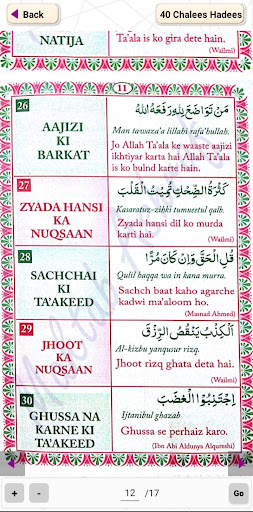 Back
40 Chalees Hadees
NATIJA
Ta'ala is ko gira dete hain.
(Wailmi)
11
26
AAJIZI
KI
BARKAT
مَنْ تَوَاضَعَ لِلّٰهِ رَفَعَهُ اللهُ
Man tawaza'a lillahi rafa'hullah.
Jo Allah Ta'ala ke waaste aajizi
ikhtiyar karta hai Allah Ta'ala
is ko bulnd karte hain.
(Wailmi)
27
ZYADA HANSI
KA
NUQSAAN
كَثْرَةُ الضِّحْكِ تُمِيْتُ الْقَلْبَ
Kasaratuz-zihki tumueetul qalb.
Zyada hansi dil ko murda
karti hai.
(Wailmi)
28
SACHCHAI
KI
TA'AKEED
قُلِ الْحَقَّ وَاِنْ كَانَ مُرًّا
Qulil haqqa wa in kana murra.
Sachch baat kaho agarche
kadwi ma'aloom ho.
(Musnad Ahmed)
29
JHOOT
KA
NUQSAAN
اَلْكِذْبُ يَنْقُصُ الرِّزْقَ
Al-kizbu yanqusur rizq.
Jhoot rizq ghata deta hai.
(Wailmi)
30
GHUSSA NA
KARNE KI
TA'AKEED
اِجْتَنِبُوا الْغَضَبَ
Ijtanibul ghazab
Ghussa se perhaiz karo.
(Ibn Abi Aldunya Alqurashi)
+
-
12 /17
Go